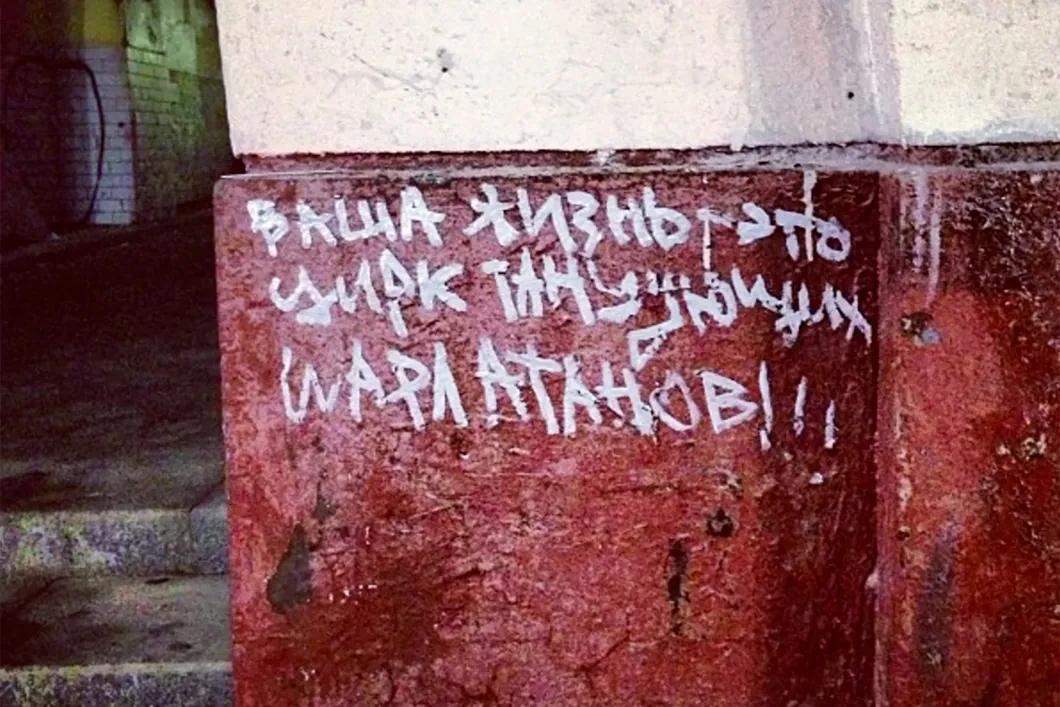 ВАША ЖИЗНЬ - ЭТО
ЦИРК ТАНЦУЮЩИХ
ШАРЛАТАНОВ!!!